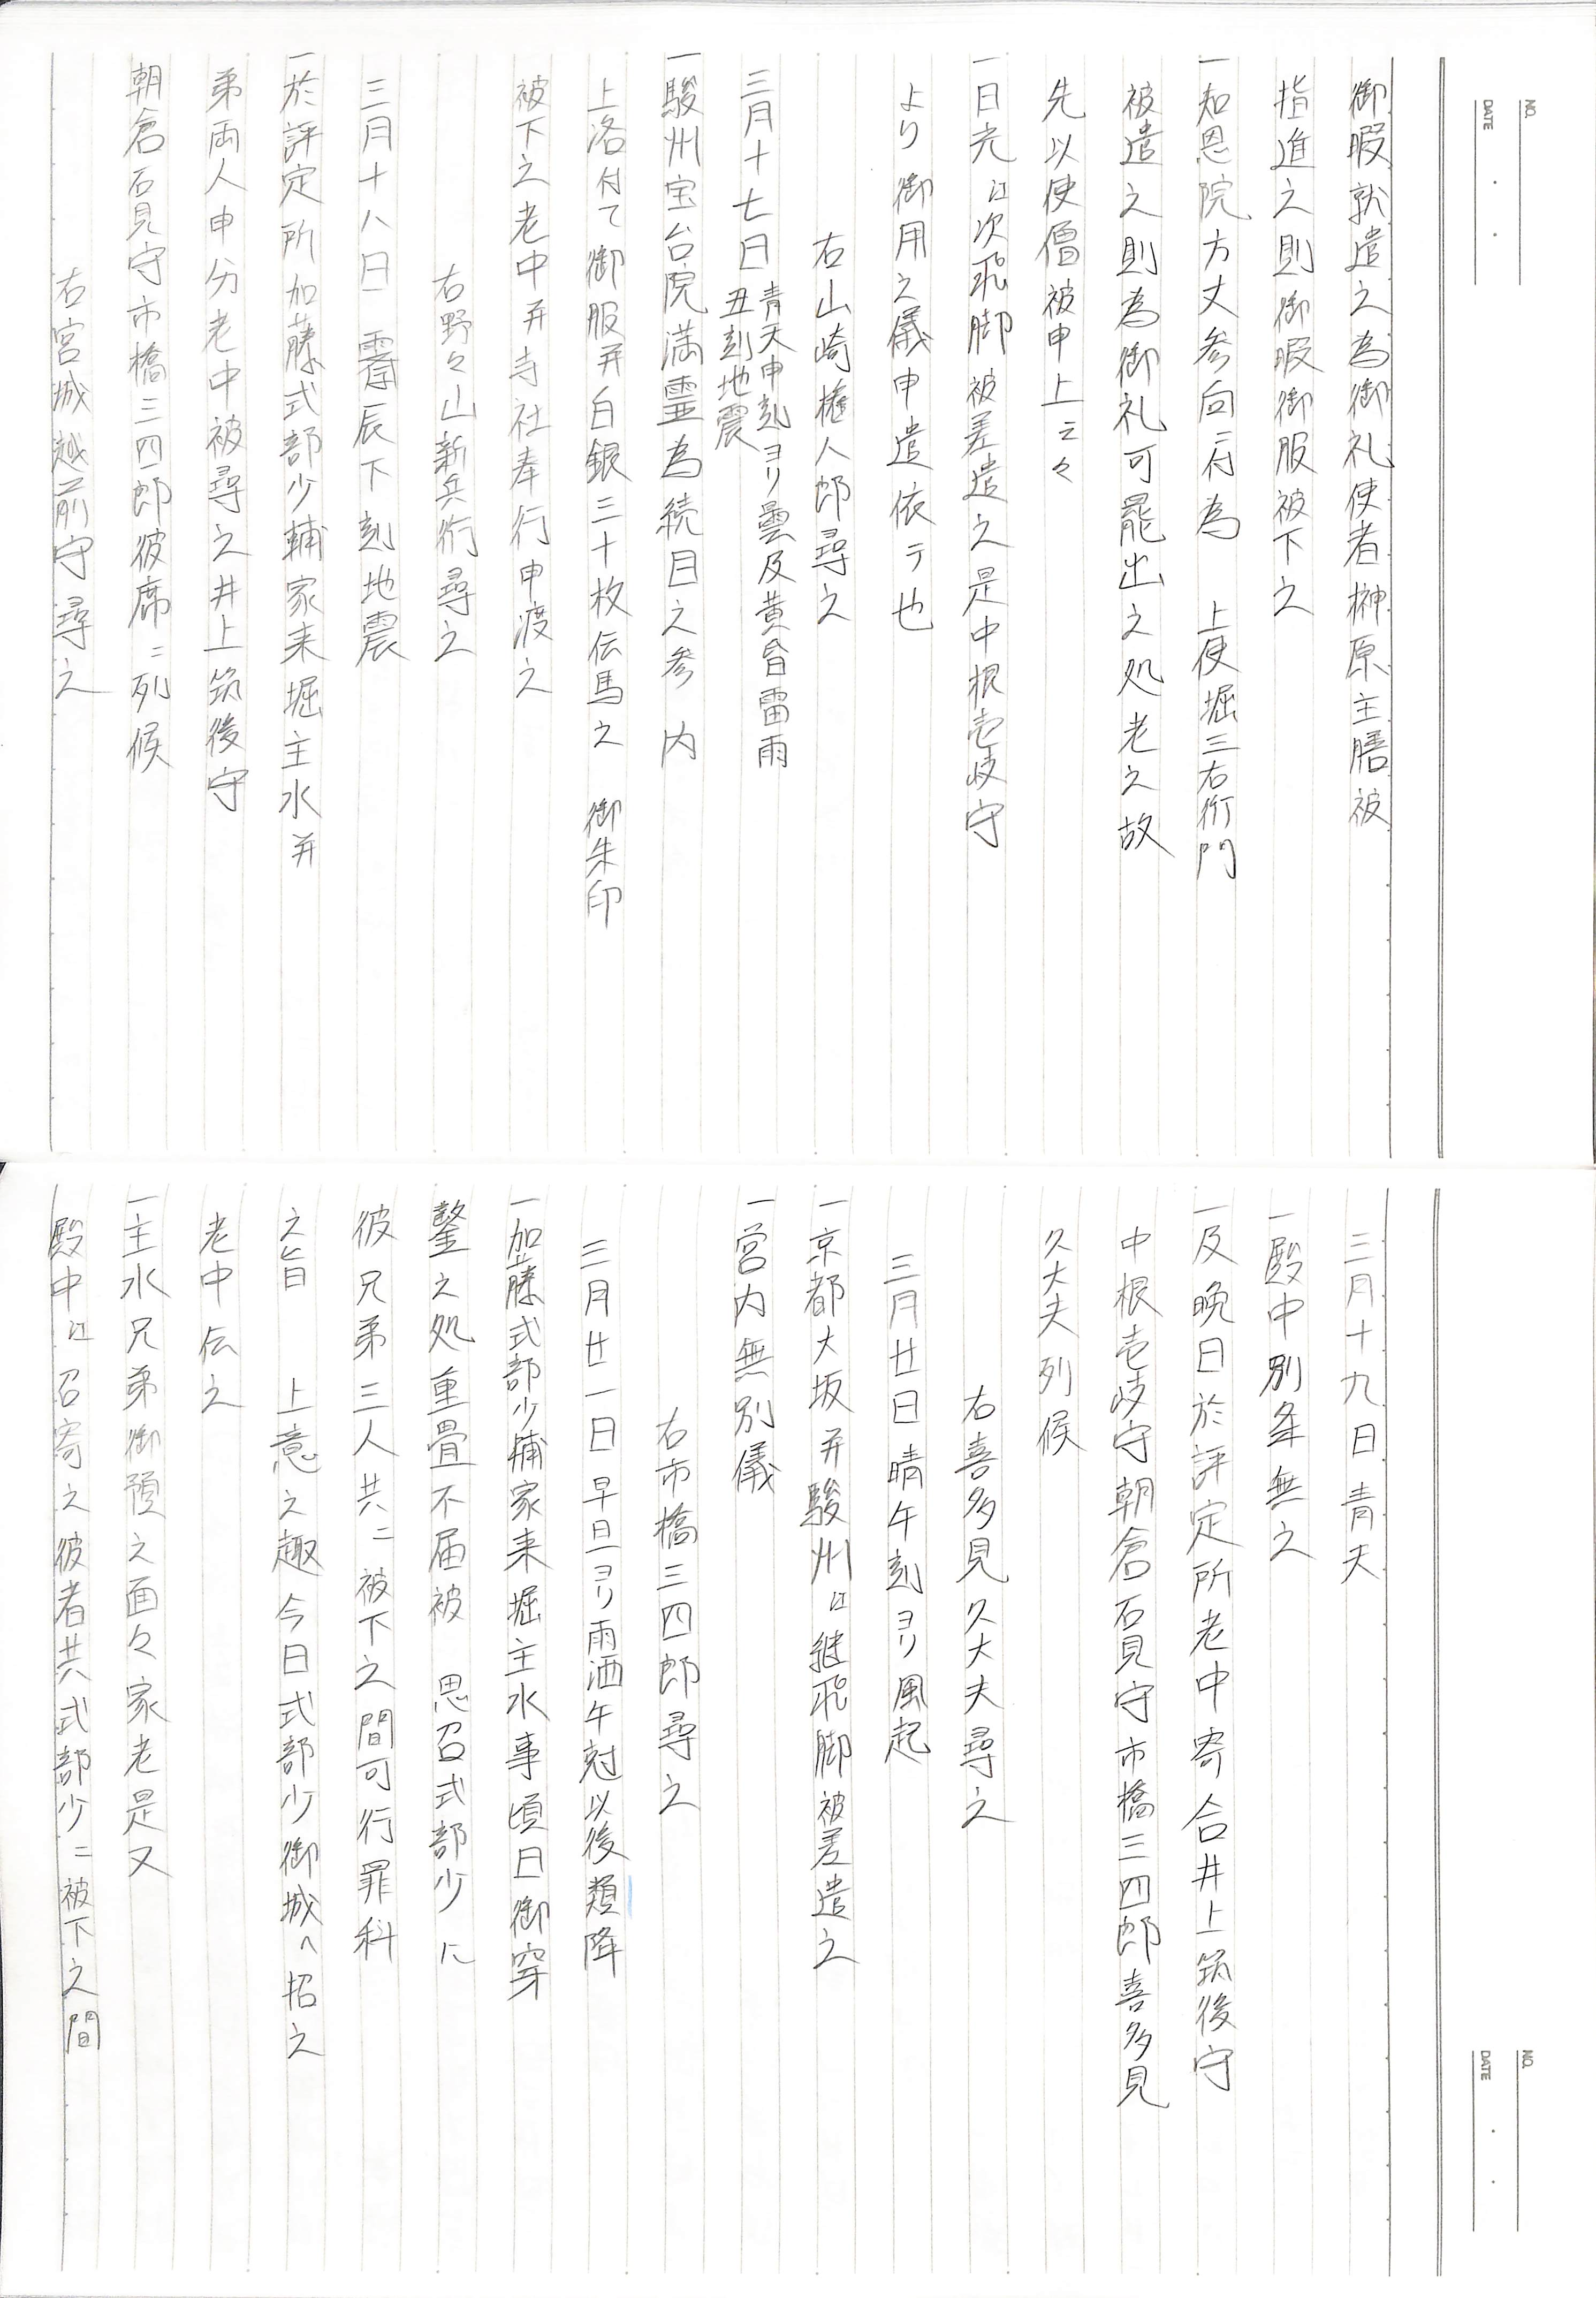 NO.
DATE
御暇就遣之為御礼使者榊原主膳被
指進之則御暇御服被下之
一知恩院方丈参向ニ付為　上使堀三右衛門
被遣之則為御礼可罷出之処老之故
先以使僧被申上云々
一日光江次飛脚被差遣之是中根壱岐守
より御用之儀申遣依テ也
右山崎権八郎尋之
三月十七日 青天申刻ヨリ曇及黄昏雷雨
丑刻地震
一駿州宝台院満霊為続目之参内
上洛付て御服并白銀三十枚伝馬之　御朱印
被下之老中并寺社奉行申渡之
右野々山新兵衛尋之
三月十八日　霽辰下刻地震
一於評定所加藤式部少輔家来堀主水并
弟両人申分老中被尋之井上筑後守
朝倉石見守市橋三四郎彼席ニ列候
右宮城越前守尋之
NO.
DATE
三月十九日青天
一殿中別条無之
一及晩日於評定所老中寄合井上筑後守
中根壱岐守朝倉石見守市橋三四郎喜多見
久大夫列候
右喜多見久大夫尋之
三月廿日晴午刻ヨリ風起
一京都大坂并駿州江継飛脚被差遣之
一営内無別儀
右市橋三四郎尋之
三月廿一日早旦ヨリ雨洒午刻以後類降
一加藤式部少輔家来堀主水事頃日御穿
鑿之処重畳不届被　思召式部少に
彼兄弟三人共ニ被下之間可行罪科
之旨　上意之趣今日式部少御城へ招之
老中伝之
一主水兄弟御預之面々家老是又
殿中江召寄之彼者共式部少ニ被下之間